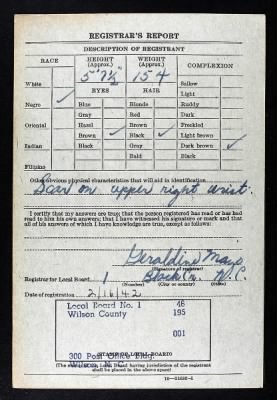 REGISTRAR'S REPORT
DESCRIPTION OF REGISTRANT
RACE
HEIGHT (Approx.)
WEIGHT (Approx.)
COMPLEXION
5' 7½"
154
White
Sallow
Light
EYES
HAIR
Negro ✓
Blue
Blonde
Ruddy
Gray
Red
Dark
Oriental
Hazel
Brown
Freckled
Brown ✓
Black ✓
Light brown
Indian
Black
Gray
Dark brown ✓
Bald
Black
Filipino
Other obvious physical characteristics that will aid in identification
Scar on upper right wrist.
I certify that my answers are true; that the person registered has read or has had
read to him his own answers; that I have witnessed his signature or mark and that
all of his answers of which I have knowledge are true, except as follows:
Geraldine
(Signature of registrar)
Registrar for Local Board 1 N.C.
(Number) (City or county) (State)
Date of registration 2/16/42
Local Board No. 1 46
Wilson County 195
001
300 Post Office Bldg.
Wilson, N. C.
(STAMP OF LOCAL BOARD)
(The stamp of the Local Board having jurisdiction of the registrant
shall be placed in the above space.)